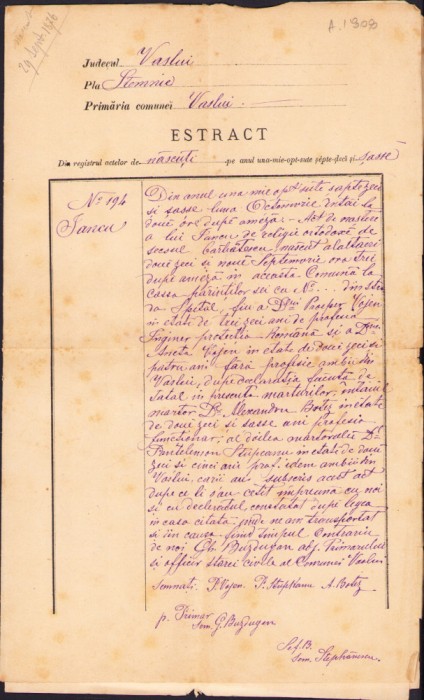 29 Sept. 1876
A. 1908
Judeçul Vaslui
Pla Stemnic
Primăria comunei Vaslui
ESTRACT
Din registrul actelor de născuți pe anul una-mie-opt-sute șépte-ḑeci și șasse
No 194
Iancu
Din anul una mie opt sute șaptezeci
și șasse luna Octomvrie întâi la
două ore după ameză – Act de nastere
a lui Iancu de religie ortodoxă de
secsul bărbătescu, născut alaltaeri
două zeci și nouă Septemvrie ora trei
după ameză în aceasta Comună la
casa părinților sei cu No ... din stra
da Spital, fiu a Dlui Vojen
în etate de trei zeci ani de profesia
Inginer protectia Română și a Dnei
Aneta Vojen în etate de două zeci și
patru ani fără profesie ambii din
Vaslui, dupe declaratia făcută de
tatăl în presenta marturilor, întâiul
martor D. Alexandru Botez în etate
de două zeci și sasse ani profesia
funcționar, al doilea martor D.
Pantelemon Stupcanu în etate de două
zeci și cinci ani prof. idem ambii din
Vaslui, carii au subscris acest act
dupe ce li sau cetit împreună cu noi
și cu declarantul constatat dupe legea
în casa citată unde ne am transportat
și în causa fiind timpul contrariu
de noi G. Buzdugan adj. Primarului
și officer stărei civile al Comunei Vaslui
semnați P. Vojen P. Stupcanu A. Botez
p. Primar
sem. G. Buzdugan
Șef. B.
sem. Stephănescu